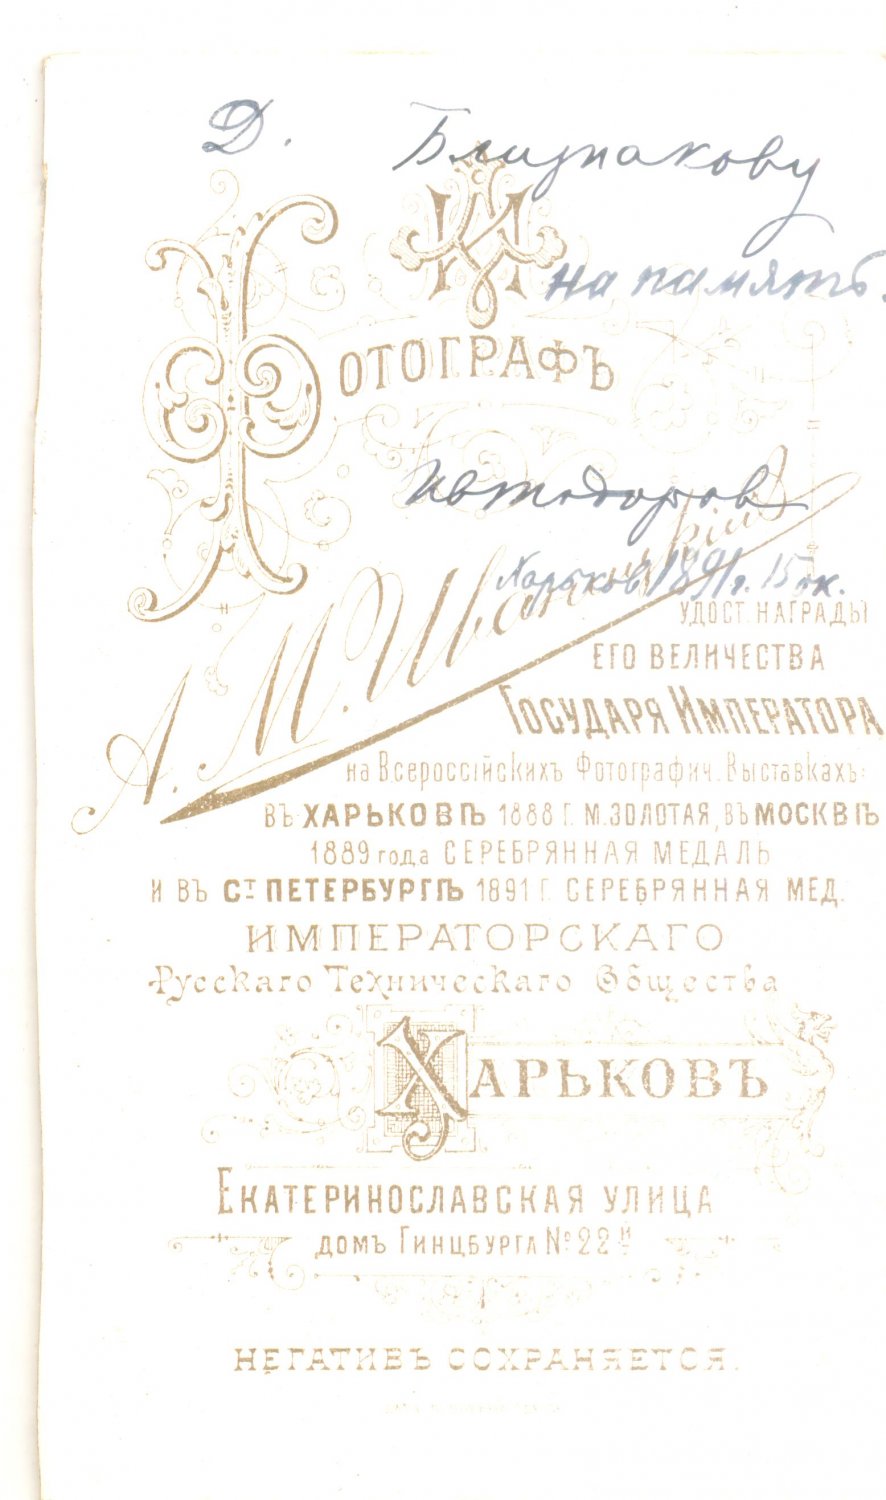 Д. Близнакову
на память.
Фотографъ
А. М. Иваницкій
Харьков 1891 г. 15 ок.
УДОСТ. НАГРАДЫ
ЕГО ВЕЛИЧЕСТВА
ГОСУДАРЯ ИМПЕРАТОРА
на Всероссійскихъ Фотографич. Выставкахъ:
ВЪ ХАРЬКОВѢ 1888 Г. М. ЗОЛОТАЯ, ВЪ МОСКВѢ
1889 года СЕРЕБРЯННАЯ МЕДАЛЬ
И ВЪ СТ ПЕТЕРБУРГѢ 1891 Г. СЕРЕБРЯННАЯ МЕД.
ИМПЕРАТОРСКАГО
Русскаго Техническаго Общества
ХАРЬКОВЪ
ЕКАТЕРИНОСЛАВСКАЯ УЛИЦА
ДОМЪ ГИНЦБУРГА № 22й
НЕГАТИВЪ СОХРАНЯЕТСЯ.